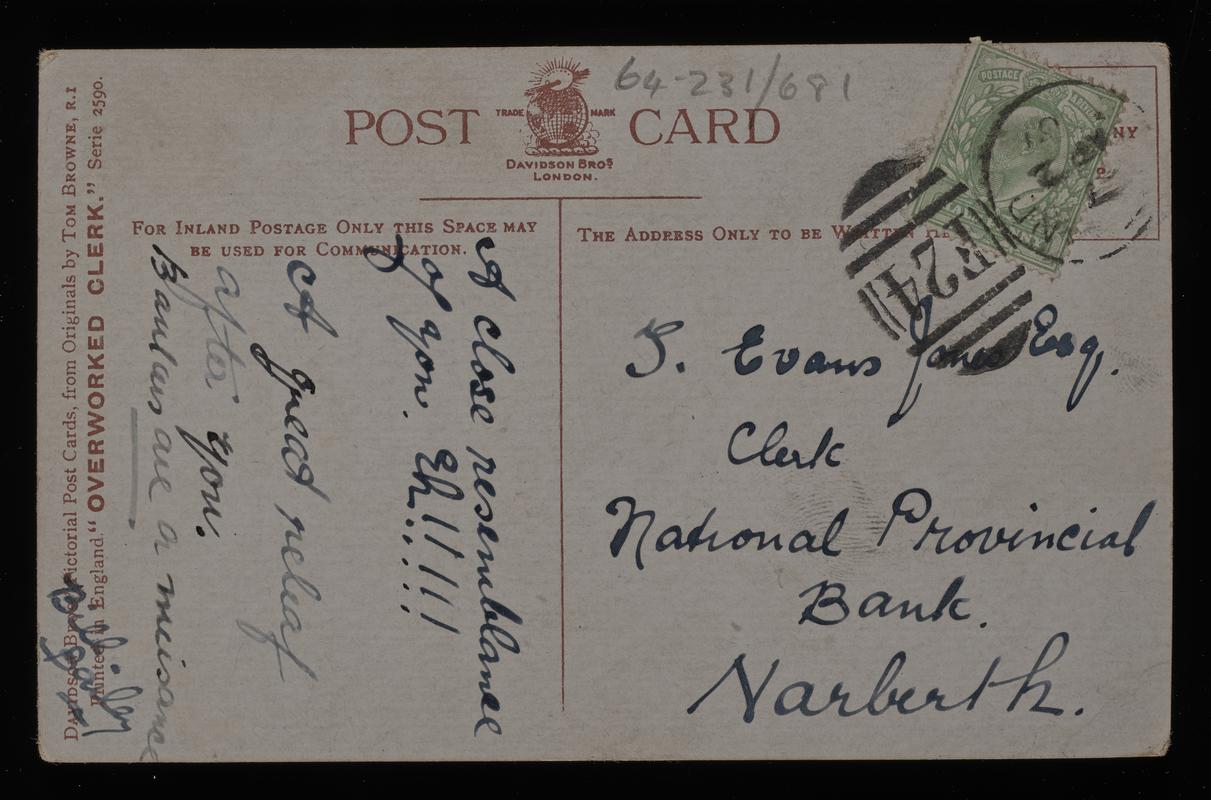 64-231/681
POST CARD
TRADE MARK
DAVIDSON BROS
LONDON.
FOR INLAND POSTAGE ONLY THIS SPACE MAY
BE USED FOR COMMUNICATION.
THE ADDRESS ONLY TO BE WRITTEN HE
NY
POSTAGE
E24
A close resemblance
of you. Eh!!!!!
A great relief
after you.
Bankers are a nuisance
S. Evans Jones Esq.
Clerk
National Provincial
Bank.
Narberth.
DAVIDSON BROS. Pictorial Post Cards, from Originals by TOM BROWNE, R.I
Printed in England. "OVERWORKED CLERK." Serie 2590.